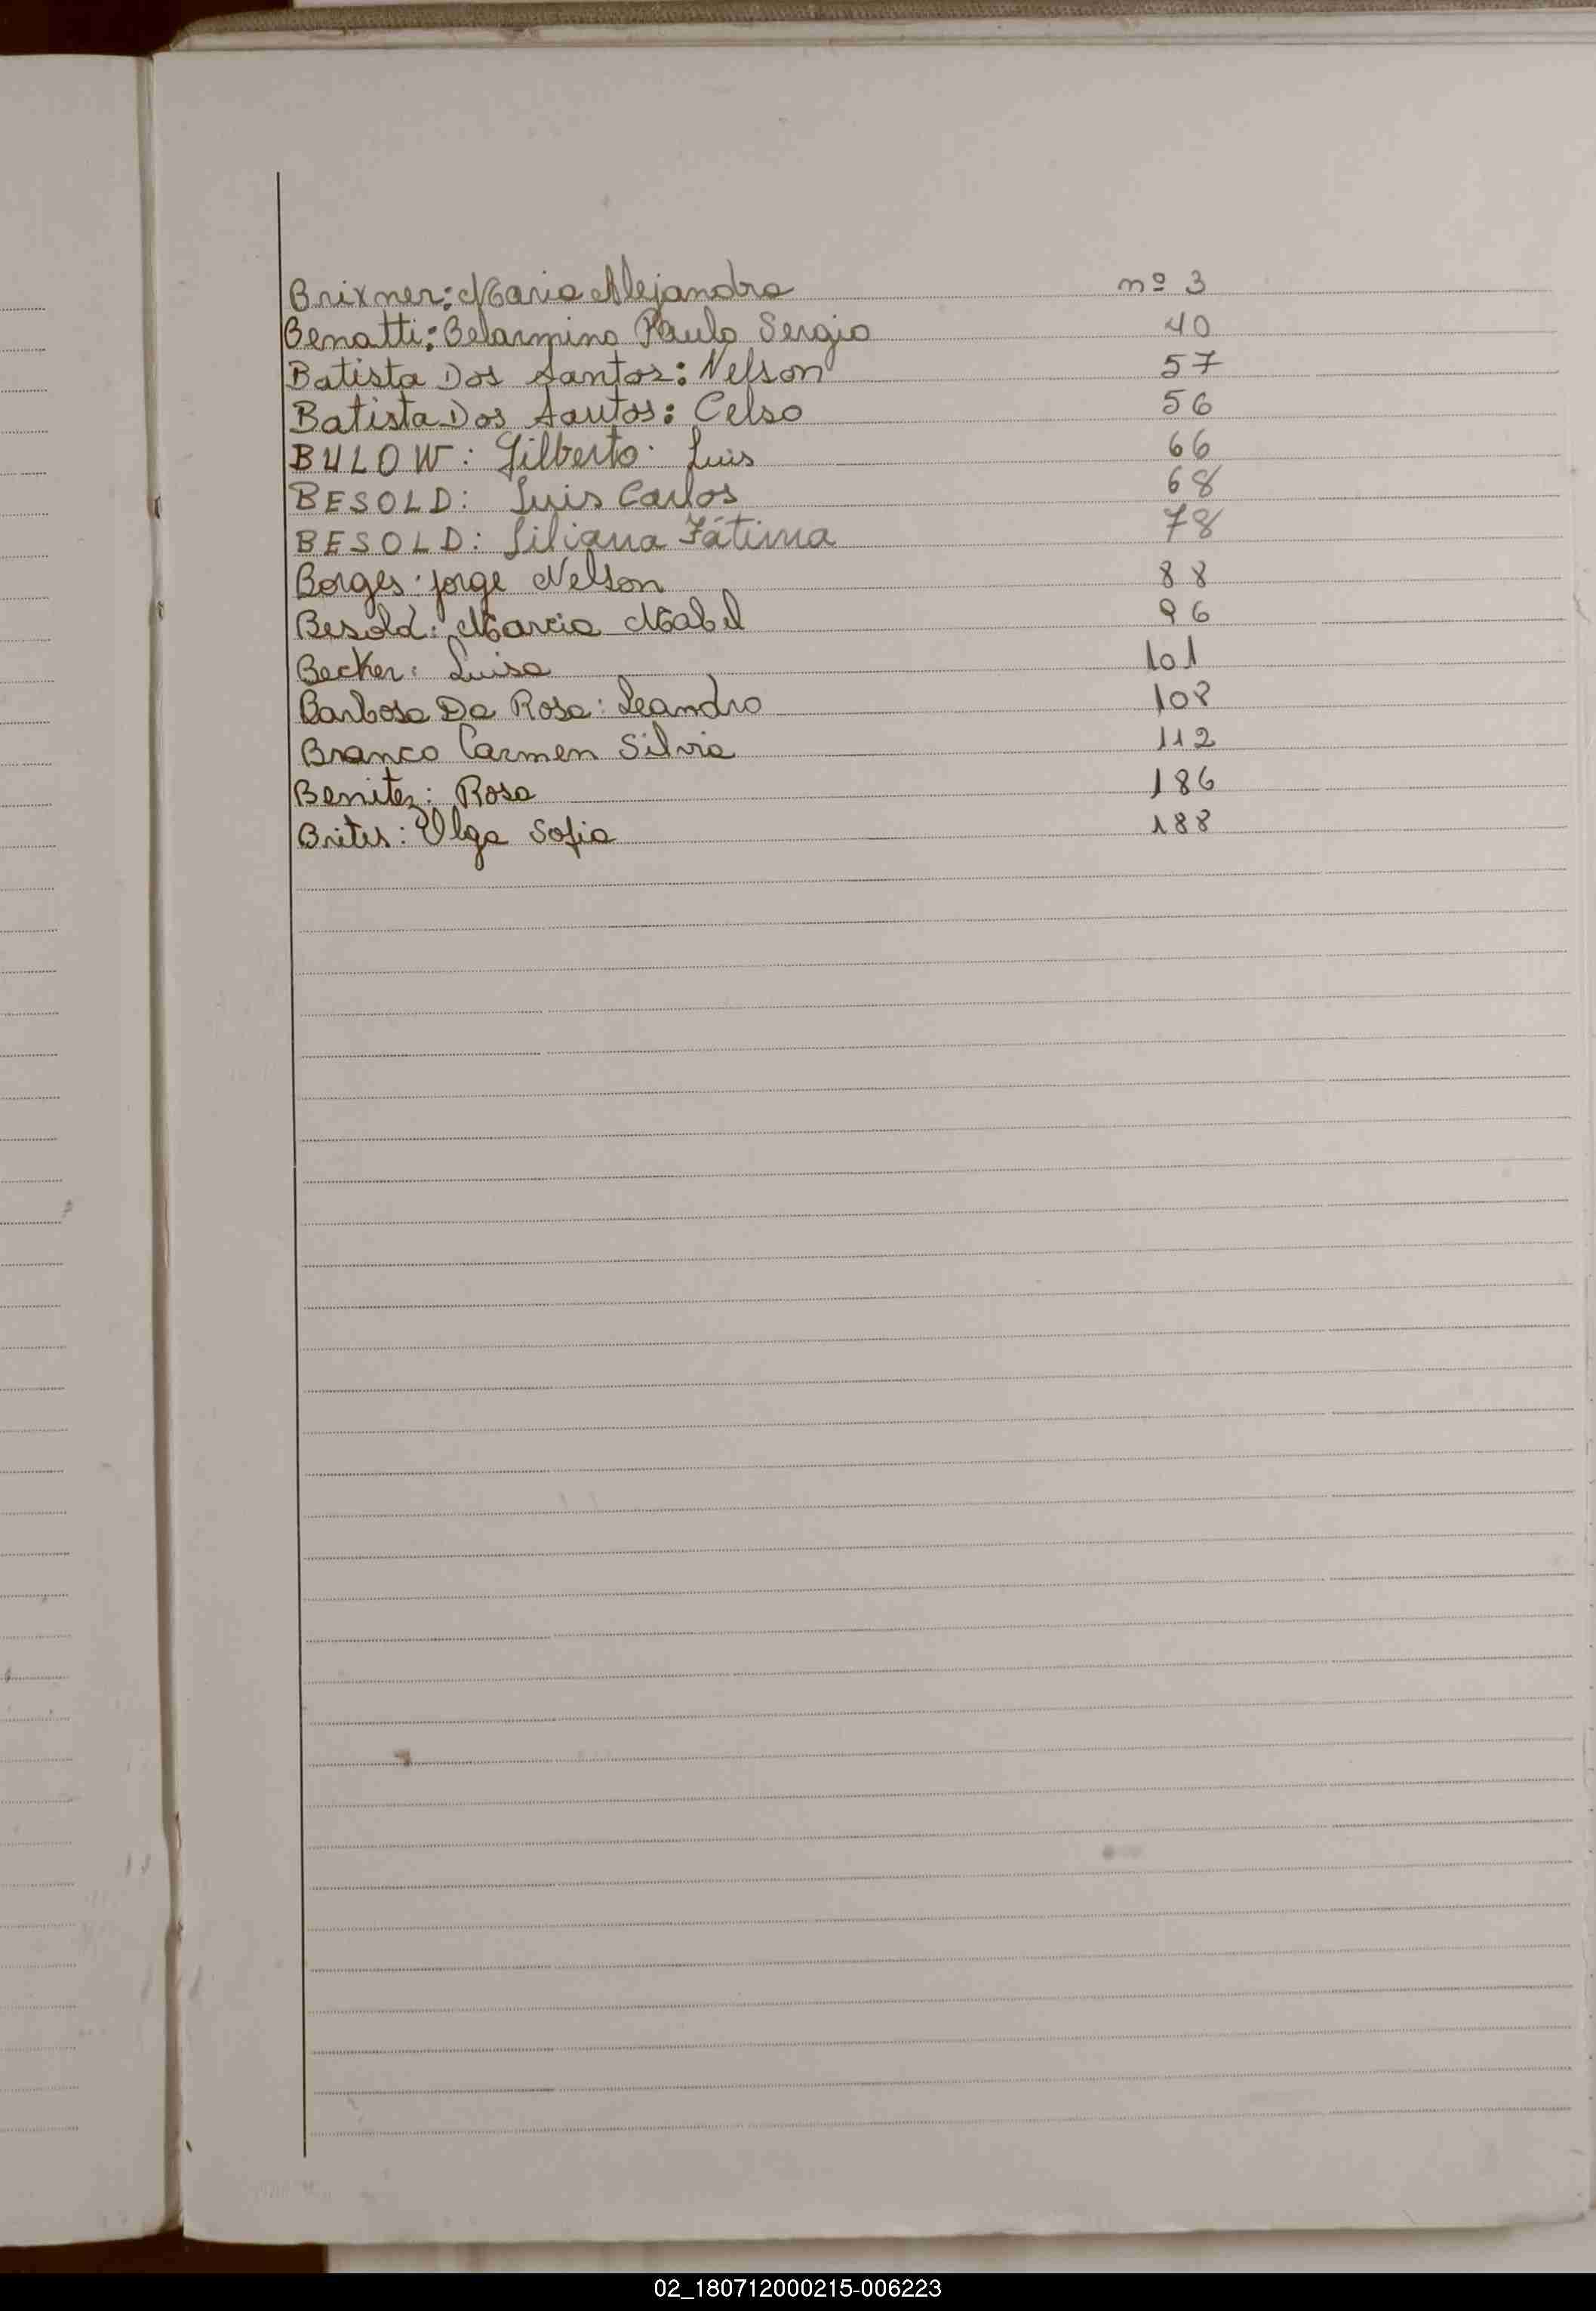 Brixner: Maria Alejandra nº 3
Benatti: Belarmino Paulo Sergio 40
Batista Dos Santos: Nelson 57
Batista Dos Santos: Celso 56
BULOW: Gilberto Luis 66
BESOLD: Luis Carlos 68
BESOLD: Liliana Fátima 78
Borges: jorge Nelson 88
Besold: Marcia Mabel 96
Becker: Luisa 101
Barbosa Da Rosa: Leandro 108
Branco Carmen Silvia 112
Benitez: Rosa 186
Brites: Olga Sofia 188
02_180712000215-006223